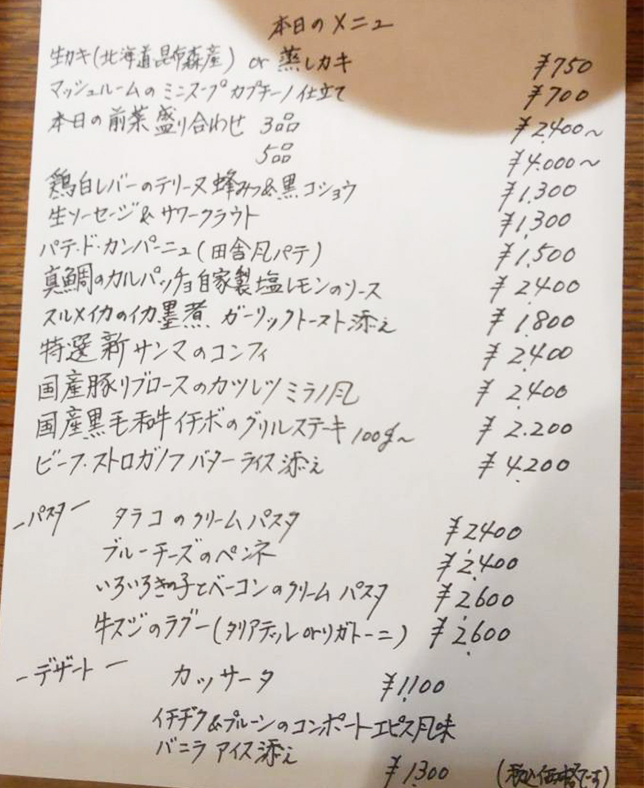 本日のメニュー
生カキ(北海道昆布森産) or 蒸しカキ ¥750
マッシュルームのミニスープカプチーノ仕立て ¥700
本日の前菜盛り合わせ 3品 ¥2,400~
5品 ¥4,000~
鶏白レバーのテリーヌ蜂みつ&黒コショウ ¥1,300
生ソーセージ&サワークラウト ¥1,300
パテ・ド・カンパーニュ(田舎風パテ) ¥1,500
真鯛のカルパッチョ自家製塩レモンのソース ¥2400
スルメイカのイカ墨煮 ガーリックトースト添え ¥1,800
特選新サンマのコンフィ ¥2,400
国産豚リブロースのカツレツ ミラノ風 ¥2,400
国産黒毛和牛イチボのグリルステーキ 100g~ ¥2.200
ビーフ・ストロガノフ バターライス添え ¥4,200
-パスタ- タラコのクリームパスタ ¥2400
ブルーチーズのペンネ ¥2,400
いろいろきの子とベーコンのクリームパスタ ¥2600
牛スジのラグー(タリアテッレ orリガトーニ) ¥2,600
-デザート- カッサータ ¥1,100
イチヂク&プルーンのコンポートエピス風味
バニラアイス添え
¥1,300 (税込価格です)